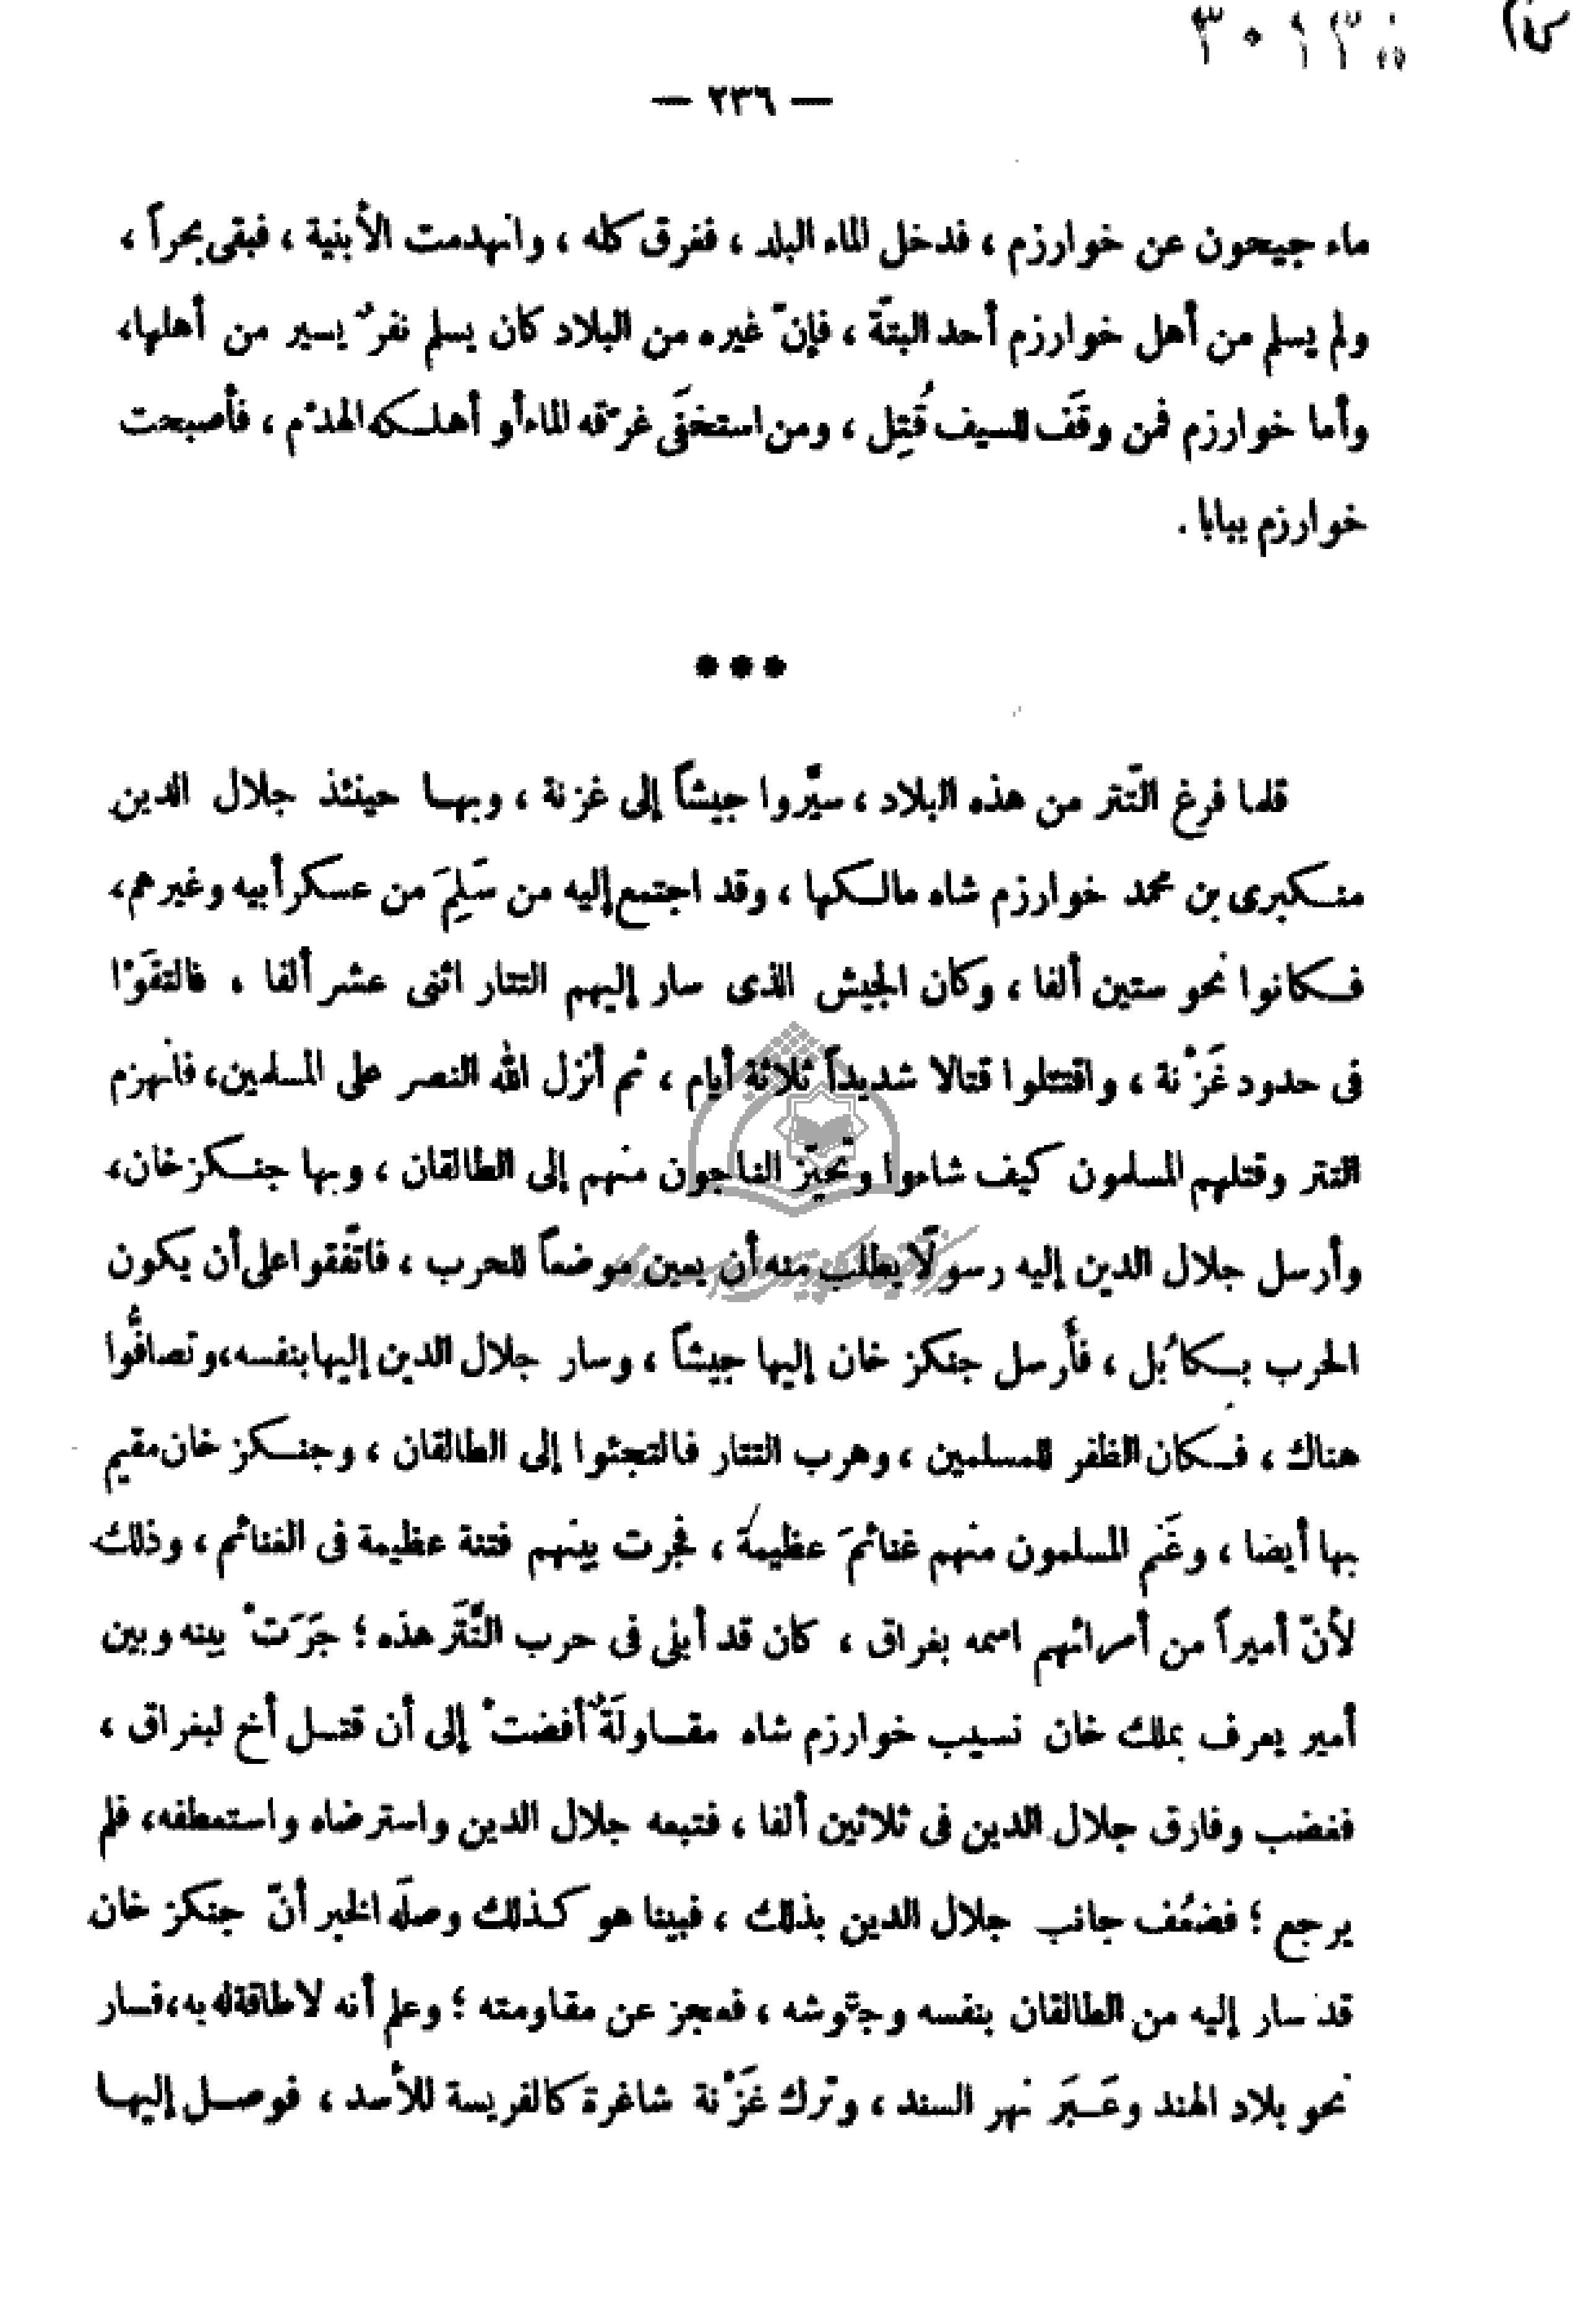 — ٢٣٦ —
ماء جيحون عن خوارزم ، فدخل الماء البلد ، فغرق كله ، وانهدمت الأبنية ، فبقى بحراً ،
ولم يسلم من أهل خوارزم أحد البتّة ، فإنّ غيره من البلاد كان يسلم نفرٌ يسير من أهلها،
وأما خوارزم فمن وقَف للسيف قُتِل ، ومن استخفَى غرّقه الماء أو أهلكه الهدْم ، فأصبحت
خوارزم يبابا .
***
قلما فرغ التّتر من هذه البلاد ، سيَّروا جيشاً إلى غزنة ، وبها حينئذ جلال الدين
منكبرى بن محمد خوارزم شاه مالكها ، وقد اجتمع إليه من سَلِمَ من عسكر أبيه وغيرهم،
فكانوا نحو ستين ألفا ، وكان الجيش الذى سار إليهم التتار اثنى عشر ألفا ، فالتقَوْا
فى حدود غَزْنة ، واقتتلوا قتالا شديداً ثلاثة أيام ، ثم أنزل الله النصر على المسلمين، فانهزم
التتر وقتلهم المسلمون كيف شاءوا وتحيّز الناجون منهم إلى الطالقان ، وبها جنكزخان،
وأرسل جلال الدين إليه رسولًا يطلب منه أن يعين موضعاً للحرب ، فاتّفقوا على أن يكون
الحرب بكابُل ، فأرسل جنكز خان إليها جيشاً ، وسار جلال الدين إليها بنفسه، وتصافُّوا
هناك ، فكان الظفر للمسلمين ، وهرب التتار فالتجئوا إلى الطالقان ، وجنكز خان مقيم
بها أيضا ، وغَنم المسلمون منهم غنائمَ عظيمة ، فجرت بينهم فتنة عظيمة فى الغنائم ، وذلك
لأنّ أميراً من أمرائهم اسمه بغراق ، كان قد أبلى فى حرب التَّتَر هذه ؛ جَرَتْ بينه وبين
أمير يعرف بملك خان نسيب خوارزم شاه مقاولَةٌ أفضتْ إلى أن قتل أخ لبغراق ،
فغضب وفارق جلال الدين فى ثلاثين ألفا ، فتبعه جلال الدين واسترضاه واستعطفه، فلم
يرجع ؛ فضعُف جانب جلال الدين بذلك ، فبينا هو كذلك وصلَه الخبر أنّ جنكز خان
قد سار إليه من الطالقان بنفسه وجيوشه ، فعجز عن مقاومته ؛ وعلم أنه لا طاقة له به، فسار
نحو بلاد الهند وعَبَرَ نهر السند ، وترك غَزْنة شاغرة كالفريسة للأسد ، فوصل إليها